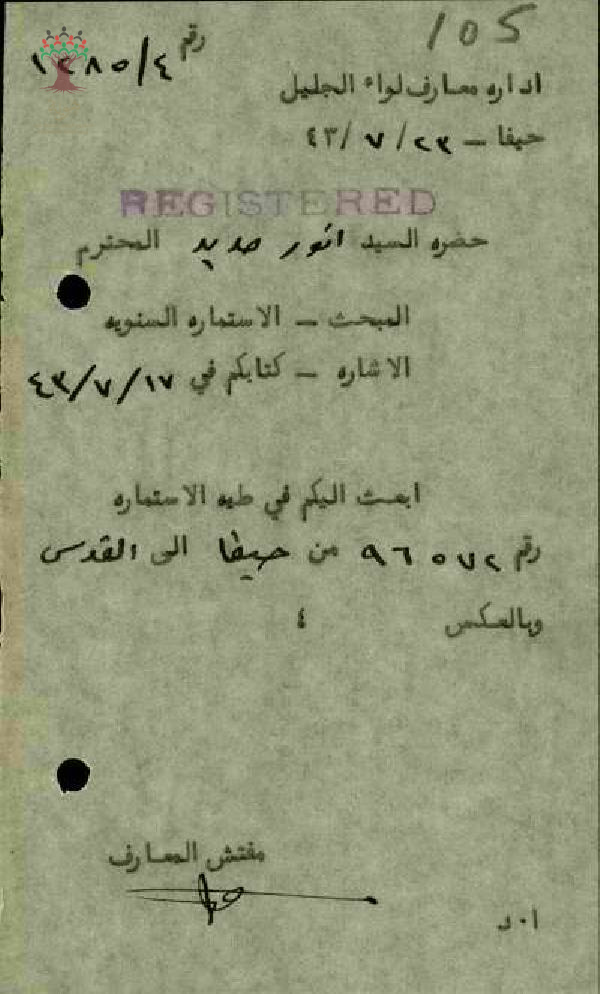 105
رقم ١٢٨٥/٤
اداره معارف لواء الجليل
حيفا - ٤٣/٧/٢٣
REGISTERED
حضره السيد انور حديد المحترم
المبحث - الاستماره السنويه
الاشاره - كتابكم في ٤٣/٧/١٧
ابعث اليكم في طيه الاستماره
رقم ٩٦٥٧٢ من حيفا الى القدس
وبالعكس ٤
مفتش المعارف
ا.د